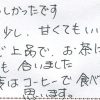 しかったです
少し、甘くてもい
で上品で、お茶に
も合いました
はコーヒーで食べ
思います。